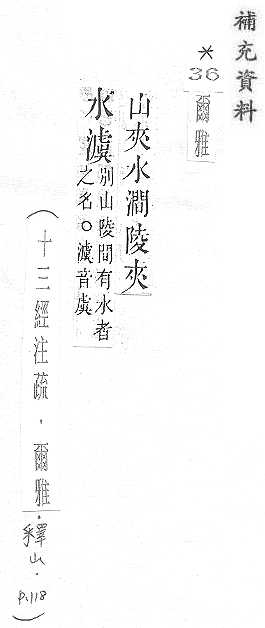 補充資料
*36 爾雅
山夾水澗陵夾
水澞別山陵間有水者
之名○澞音虞
(十三經注疏.爾雅.釋山.p.118)